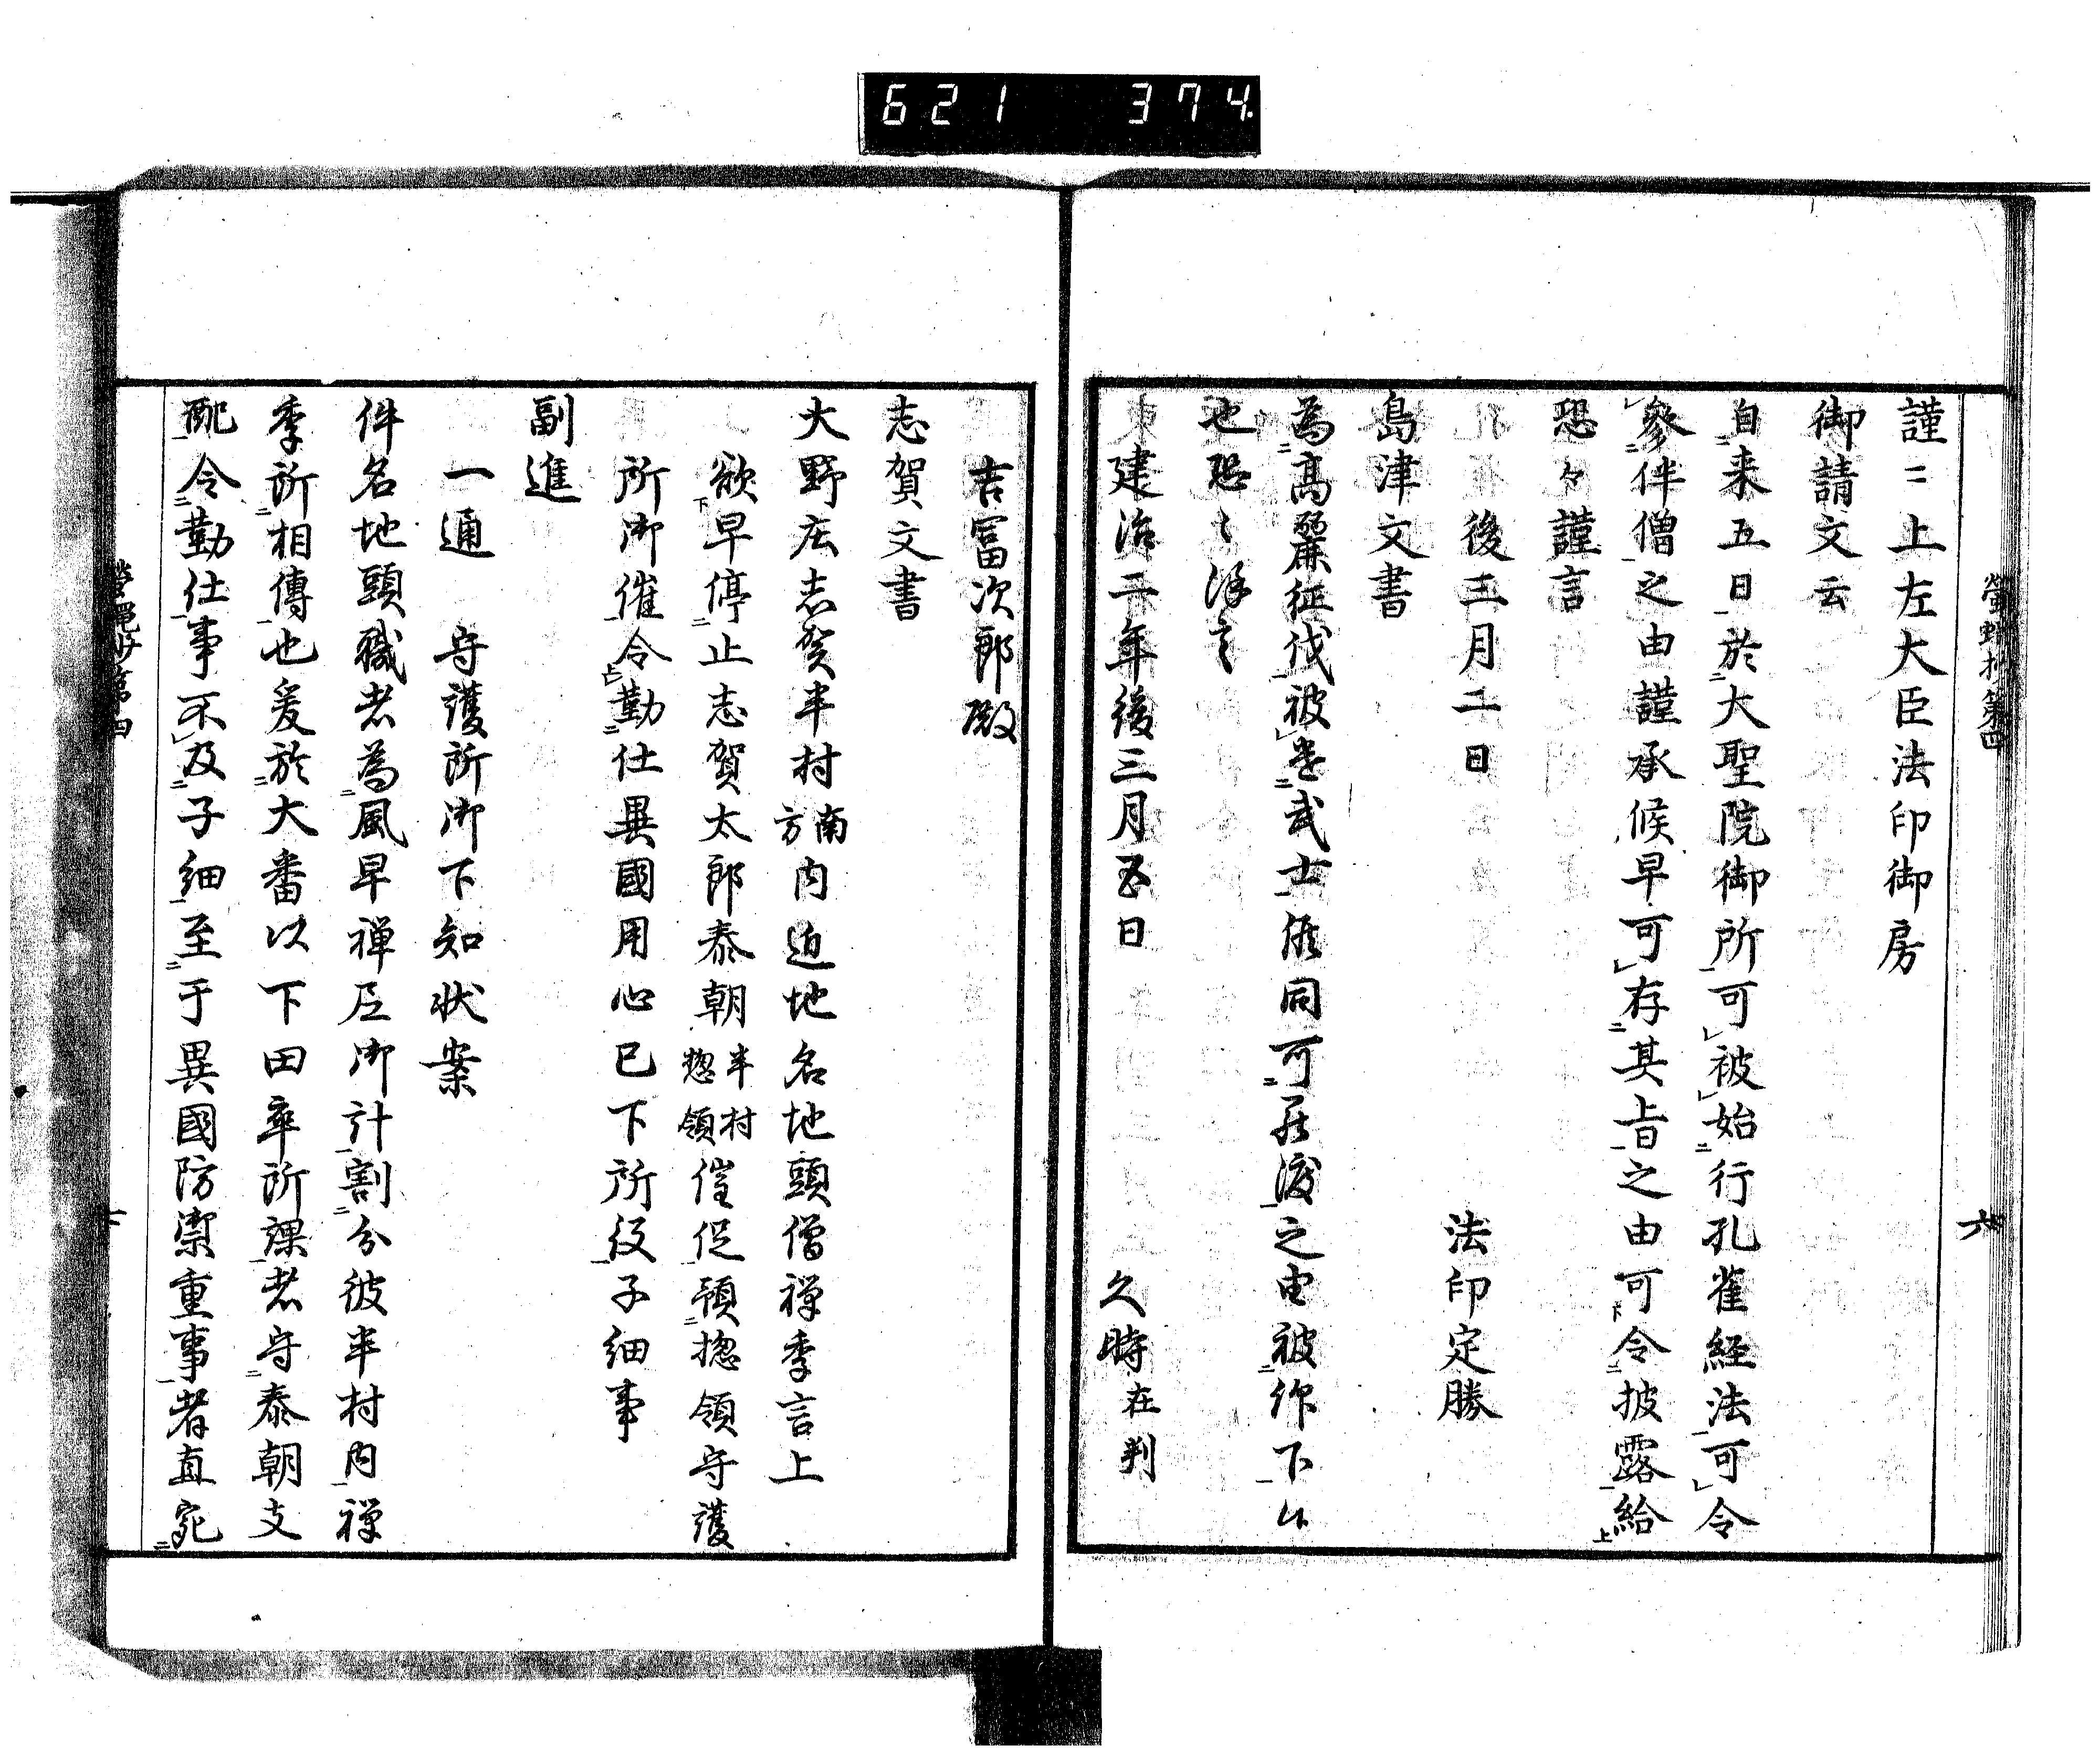 621 374
螢蠅抄第四 六
謹々上左大臣法印御房
御請文云
自来五日於大聖院御所可被始行孔雀経法可令
参伴僧之由謹承候早可存其旨之由可令披露給
恐々謹言
後三月二日 法印定勝
島津文書
為高麗征伐被遣武士候同可 渡之由被仰下候
也恐々謹言
建治二年後三月五日 久時在判
吉冨次郎殿
志賀文書
大野庄志賀半村南方内迫地名地頭僧禅季言上
欲早停止志賀太郎泰朝半村惣領催促預揔領守護
所御催令勤仕異國用心已下所役子細事
副進
一通 守護所御下知状案
件名地頭職者為風早禅尼御計割分彼半村内禅
季所相傳也爰於大番以下田率所課者守泰朝支
配令勤仕事不及子細至于異國防禦重事者直宛
螢蠅抄第四